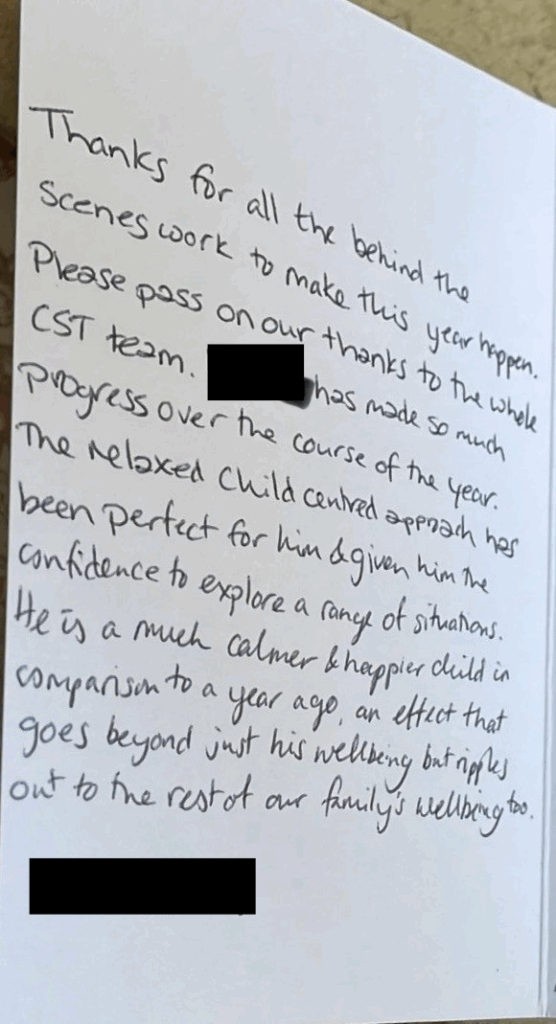 Thanks for all the behind the
scenes work to make this year happen.
Please pass on our thanks to the whole
CST team. has made so much
progress over the course of the year.
The relaxed child centred approach has
been perfect for him & given him the
confidence to explore a range of situations.
He is a much calmer & happier child in
comparison to a year ago, an effect that
goes beyond just his wellbeing but ripples
out to the rest of our family's wellbeing too.